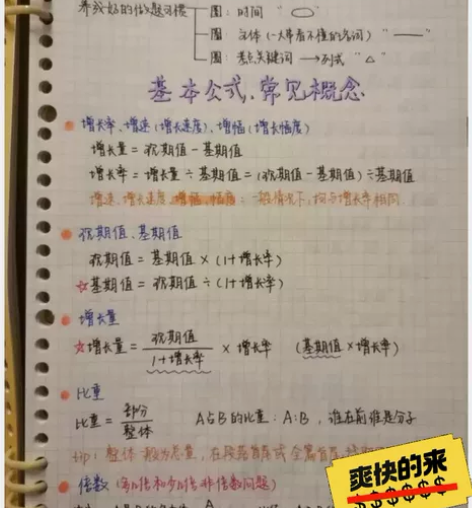 养成好的做题习惯
圈：时间 “○”
圈：主体（一大串看不懂的名词）“——”
圈：考点关键词 → 列式 “△”
基本公式、常见概念
增长率、增速（增长速度）、增幅（增长幅度）
增长量 = 现期值 - 基期值
增长率 = 增长量 ÷ 基期值 = (现期值 - 基期值) ÷ 基期值
增速、增长速度、增幅、幅度：一般情况下，均与增长率相同
现期值、基期值
现期值 = 基期值 × (1+增长率)
☆基期值 = 现期值 ÷ (1+增长率)
增长量
☆增长量 = 现期值 / 1+增长率 × 增长率 (基期值 × 增长率)
比重
比重 = 部分 / 整体 A占B的比重：A÷B，谁在前谁是分子
tip：整体一般为总量，在段落首尾或全篇首尾
倍数（多几倍和少几倍非倍数问题）
爽快的来
$$$$$$